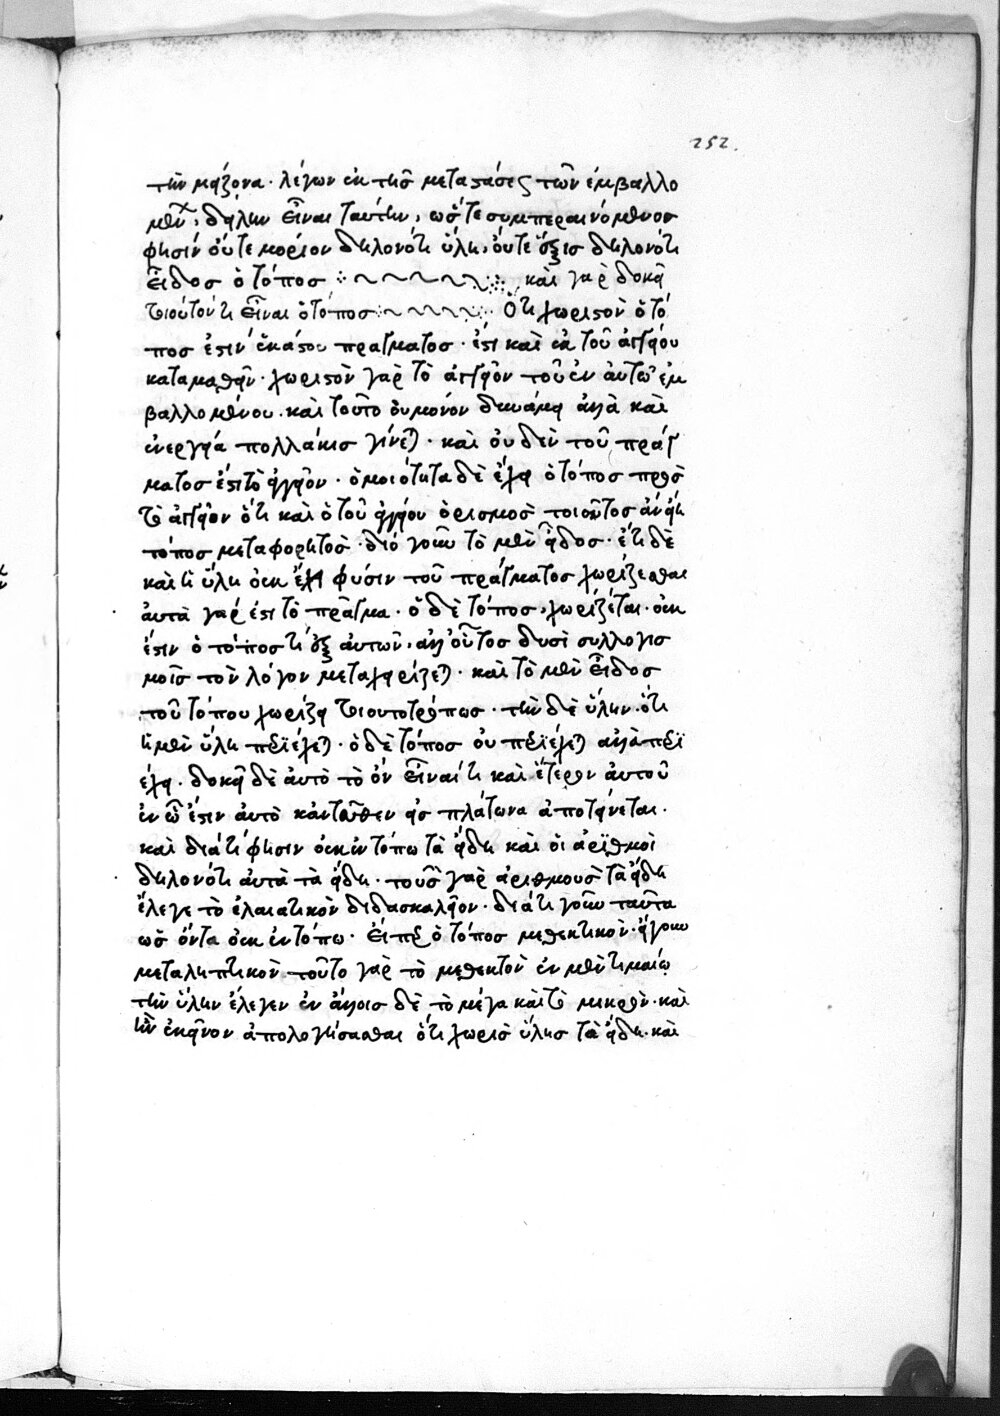 252.
τὴν μείζονα · λέγων ἐκ τῆς μεταστάσεως τῶν ἐμβαλλο
μένων, δήλην εἶναι ταύτην, ὥστε συμπεραινόμενος
φησὶν οὔτε μόριον δηλονότι ὕλη, οὔτε ἕξις δηλονότι
εἶδος ὁ τόπος καὶ γὰρ δοκεῖ
τοιοῦτόν τι εἶναι ὁ τόπος Ὅτι χωριστὸν ὁ τό
πος ἐστὶν ἑκάστου πράγματος · ἔστι καὶ ἐκ τοῦ ἀγγείου
καταμαθεῖν · χωριστὸν γὰρ τὸ ἀγγεῖον τοῦ ἐν αὐτῷ ἐμ
βαλλομένου · καὶ τοῦτο οὐ μόνον δυνάμει ἀλλὰ καὶ
ἐνεργείᾳ πολλάκις γίνεται · καὶ οὐδὲν τοῦ πράγ
ματος ἔστι τὸ ἀγγεῖον · ὁμοιότητα δὲ ἔχει ὁ τόπος πρὸς
τὸ ἀγγεῖον ὅτι καὶ ὁ τοῦ ἀγγείου ὁρισμὸς τοιοῦτος ἂν εἴη
τόπος μεταφορητός · διὸ γοῦν τὸ μὲν εἶδος · ἔτι δὲ
καὶ ἡ ὕλη οὐκ ἔχει φύσιν τοῦ πράγματος χωρίζεσθαι
αὐτὰ γάρ ἐστι τὸ πρᾶγμα · ὁ δὲ τόπος, χωρίζεται · οὐκ
ἔστιν ὁ τόπος τι ἐξ αὐτῶν, ἀλλ' οὗτος δυσὶ συλλογισ
μοῖς τὸν λόγον μεταχειρίζεται · καὶ τὸ μὲν εἶδος
τοῦ τόπου χωρίζει τοιουτοτρόπως · τὴν δὲ ὕλην · ὅτι
ἡ μὲν ὕλη περιέχεται · ὁ δὲ τόπος οὐ περιέχεται ἀλλὰ περι
έχει · δοκεῖ δὲ αὐτὸ τὸ ὂν εἶναί τι καὶ ἕτερον αὐτοῦ
ἐν ᾧ ἐστιν αὐτὸ κἀντεῦθεν εἰς πλάτωνα ἀποτείνεται ·
καὶ διάτι φησὶν οὐκ ἐν τόπω τὰ εἴδη καὶ οἱ ἀριθμοὶ
δηλονότι αὐτὰ τὰ εἴδη · τοὺς γὰρ ἀριθμοὺς τὰ εἴδη
ἔλεγε τὸ ἐλαιατικὸν διδασκαλεῖον · διάτι γοῦν ταῦτα
ὡς ὄντα οὐκ ἐν τόπω · εἴπερ ὁ τόπος μεθεκτικὸν · ἤγουν
μεταληπτικὸν τοῦτο γὰρ τὸ μεθεκτὸν ἐν μὲν τιμαίῳ
τὴν ὕλην ἔλεγεν ἐν ἄλλοις δὲ τὸ μέγα καὶ τὸ μικρὸν · καὶ
ἦν ἐκεῖνον ἀπολογήσασθαι ὅτι χωρὶς ὕλης τὰ εἴδη · καὶ